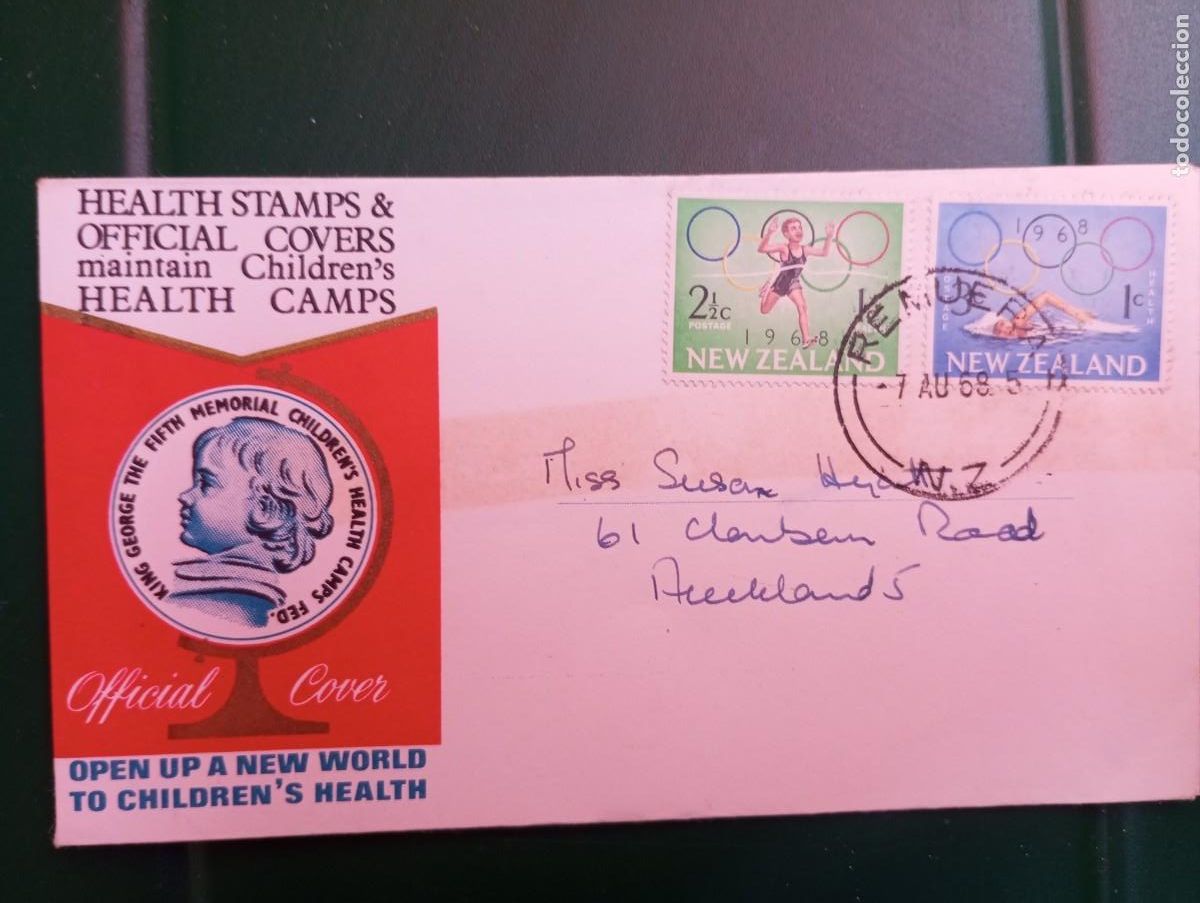 HEALTH STAMPS &
OFFICIAL COVERS
maintain Children's
HEALTH CAMPS
KING GEORGE THE FIFTH MEMORIAL CHILDREN'S HEALTH CAMPS FED.
Official Cover
OPEN UP A NEW WORLD
TO CHILDREN'S HEALTH
2½c
POSTAGE
1968
NEW ZEALAND
1968
POSTAGE
1c
HEALTH
NEW ZEALAND
REMUERA
-7 AU 68 5
N.Z.
Miss Susan
61 Road
Auckland 5
todocoleccion